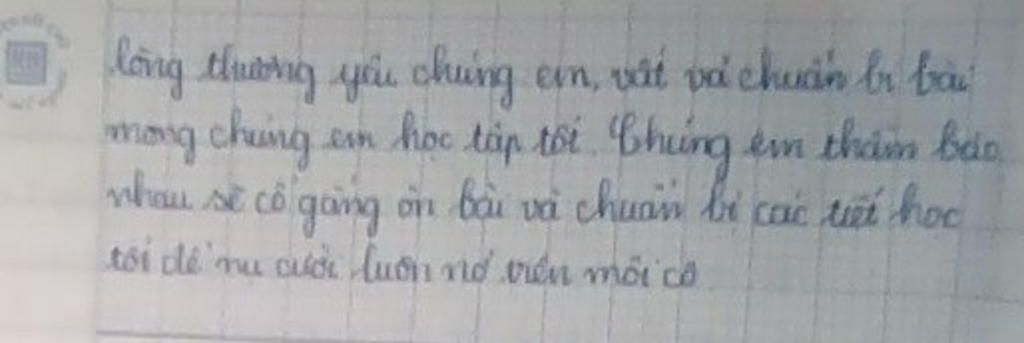 lòng thương yêu chúng em, vất vả chuẩn bị bài
mong chúng em học tập tốt. Chúng em thầm bảo
nhau sẽ cố gắng ôn bài và chuẩn bị các tiết học
tới để nụ cười luôn nở trên môi cô